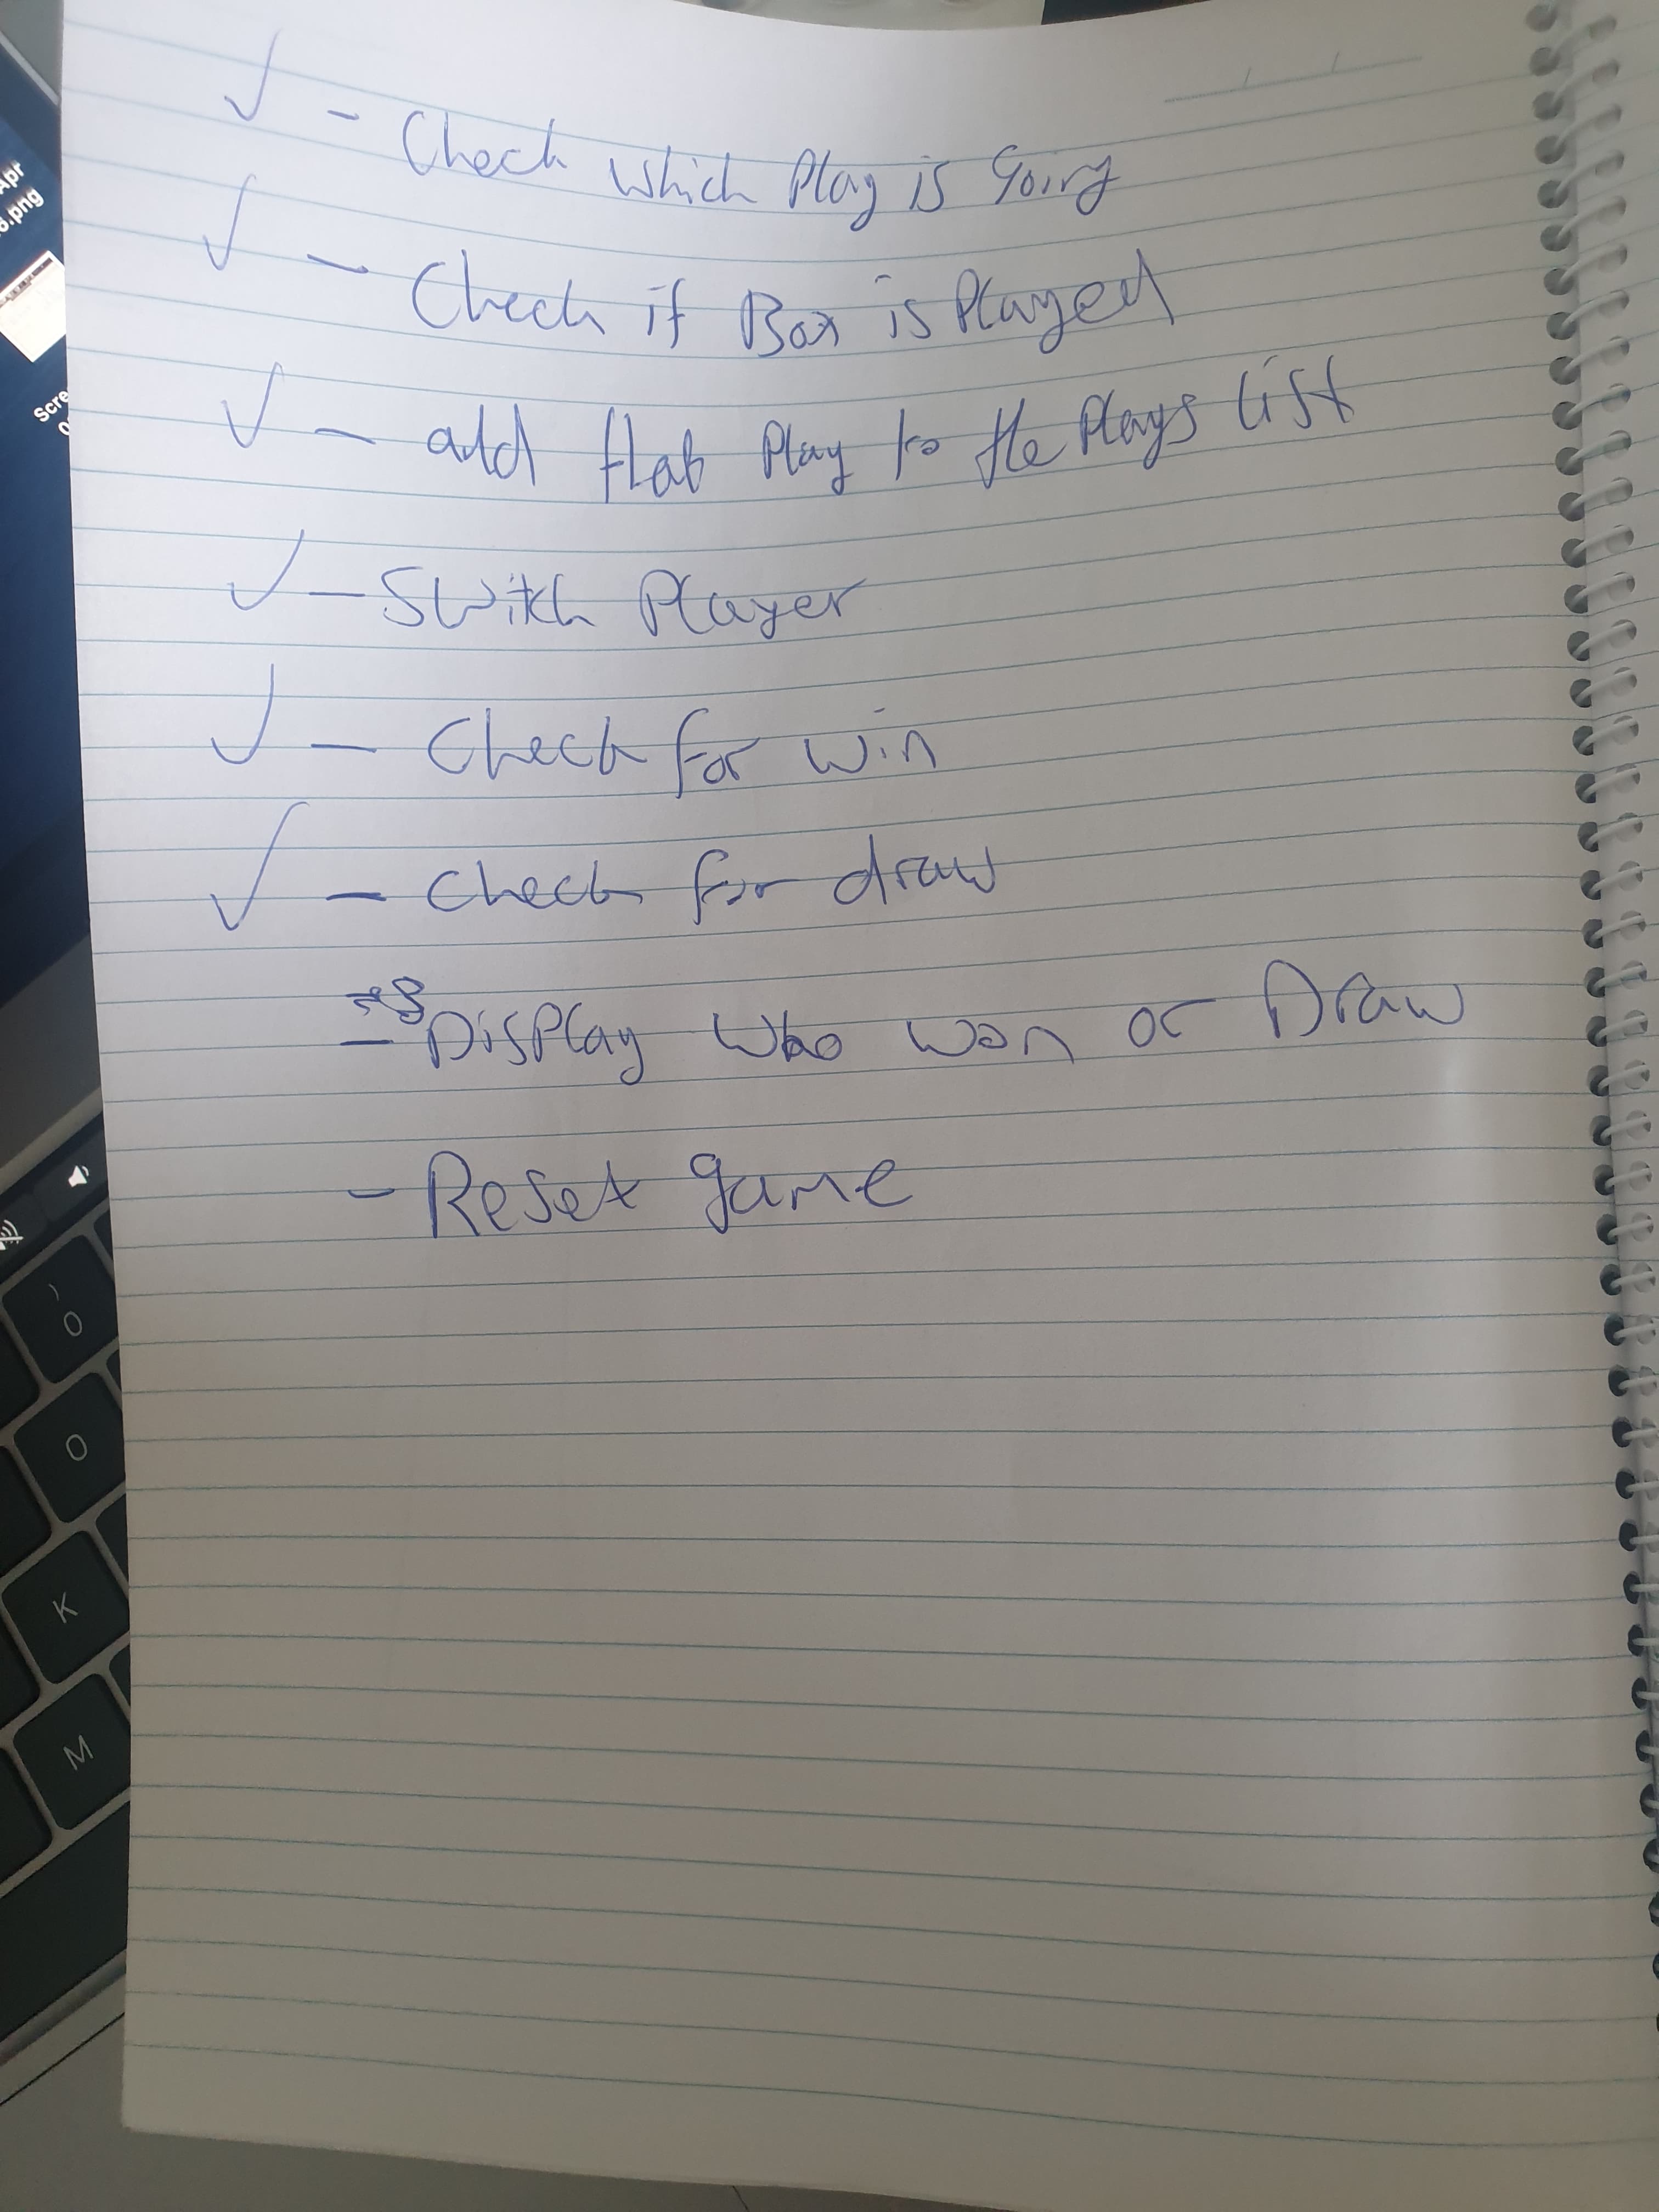 ✓ - Check which Play is going
✓ - Check if Box is Played
✓ - add that Play to the Plays list
✓ - Switch Player
✓ - Check for win
✓ - Check for draw
- Display who won or Draw
- Reset game
Apr
8.png
Scre
0
)
0
O
K
M